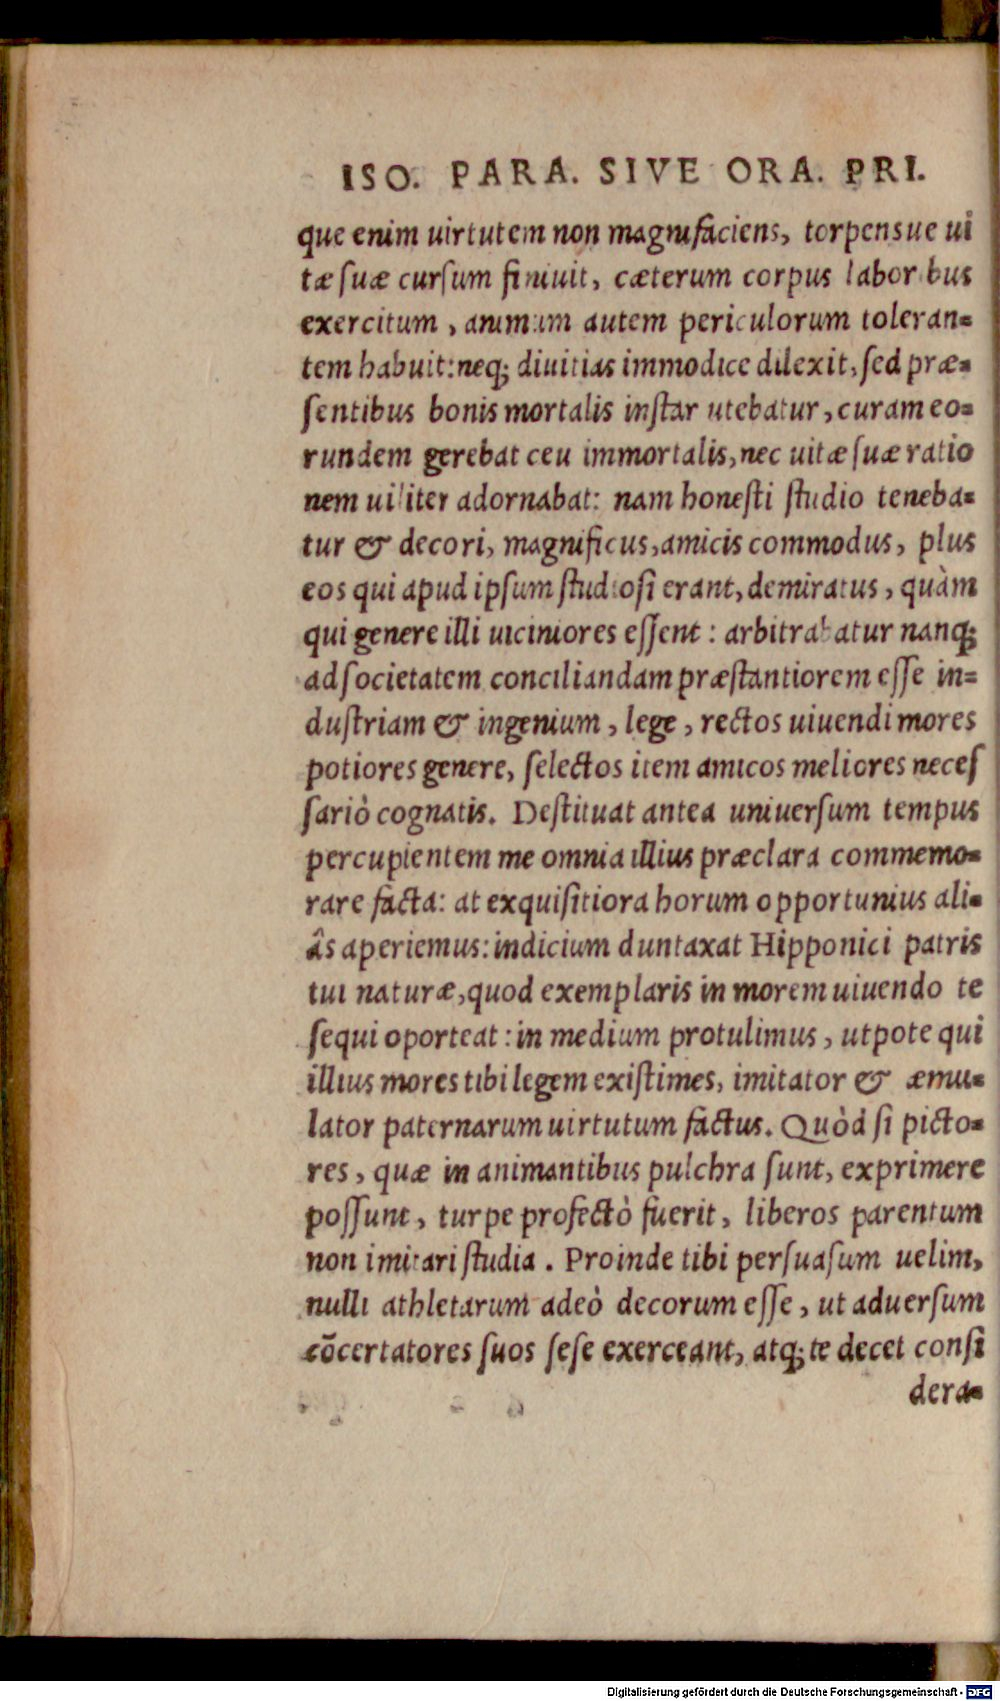 ISO. PARA. SIVE ORA. PRI.
que enim uirtutem non magnifaciens, torpensue ui
tæ ſuæ curſum finiuit, cæterum corpus laboribus
exercitum, animum autem periculorum toleran=
tem habuit: neq; diuitias immodice dilexit, ſed præ=
ſentibus bonis mortalis inſtar utebatur, curam eo=
rundem gerebat ceu immortalis, nec uitæ ſuæ ratio
nem uiliter adornabat: nam honeſti ſtudio teneba=
tur & decori, magnificus, amicis commodus, plus
eos qui apud ipſum ſtudioſi erant, demiratus, quàm
qui genere illi uiciniores eſſent: arbitrabatur nanq;
ad ſocietatem conciliandam præſtantiorem eſſe in=
duſtriam & ingenium, lege, rectos uiuendi mores
potiores genere, ſelectos item amicos meliores neceſ
ſariò cognatis. Deſtituat antea uniuerſum tempus
percupientem me omnia illius præclara commemo=
rare facta: at exquiſitiora horum opportunius ali=
âs aperiemus: indicium duntaxat Hipponici patris
tui naturæ, quod exemplaris in morem uiuendo te
ſequi oporteat: in medium protulimus, utpote qui
illius mores tibi legem exiſtimes, imitator & æmu=
lator paternarum uirtutum factus. Quòd ſi picto=
res, quæ in animantibus pulchra ſunt, exprimere
poſſunt, turpe profectò fuerit, liberos parentum
non imitari ſtudia. Proinde tibi perſuaſum uelim,
nulli athletarum adeò decorum eſſe, ut aduerſum
cōcertatores ſuos ſeſe exerceant, atq; te decet conſi
dera=
Digitalisierung gefördert durch die Deutsche Forschungsgemeinschaft - DFG